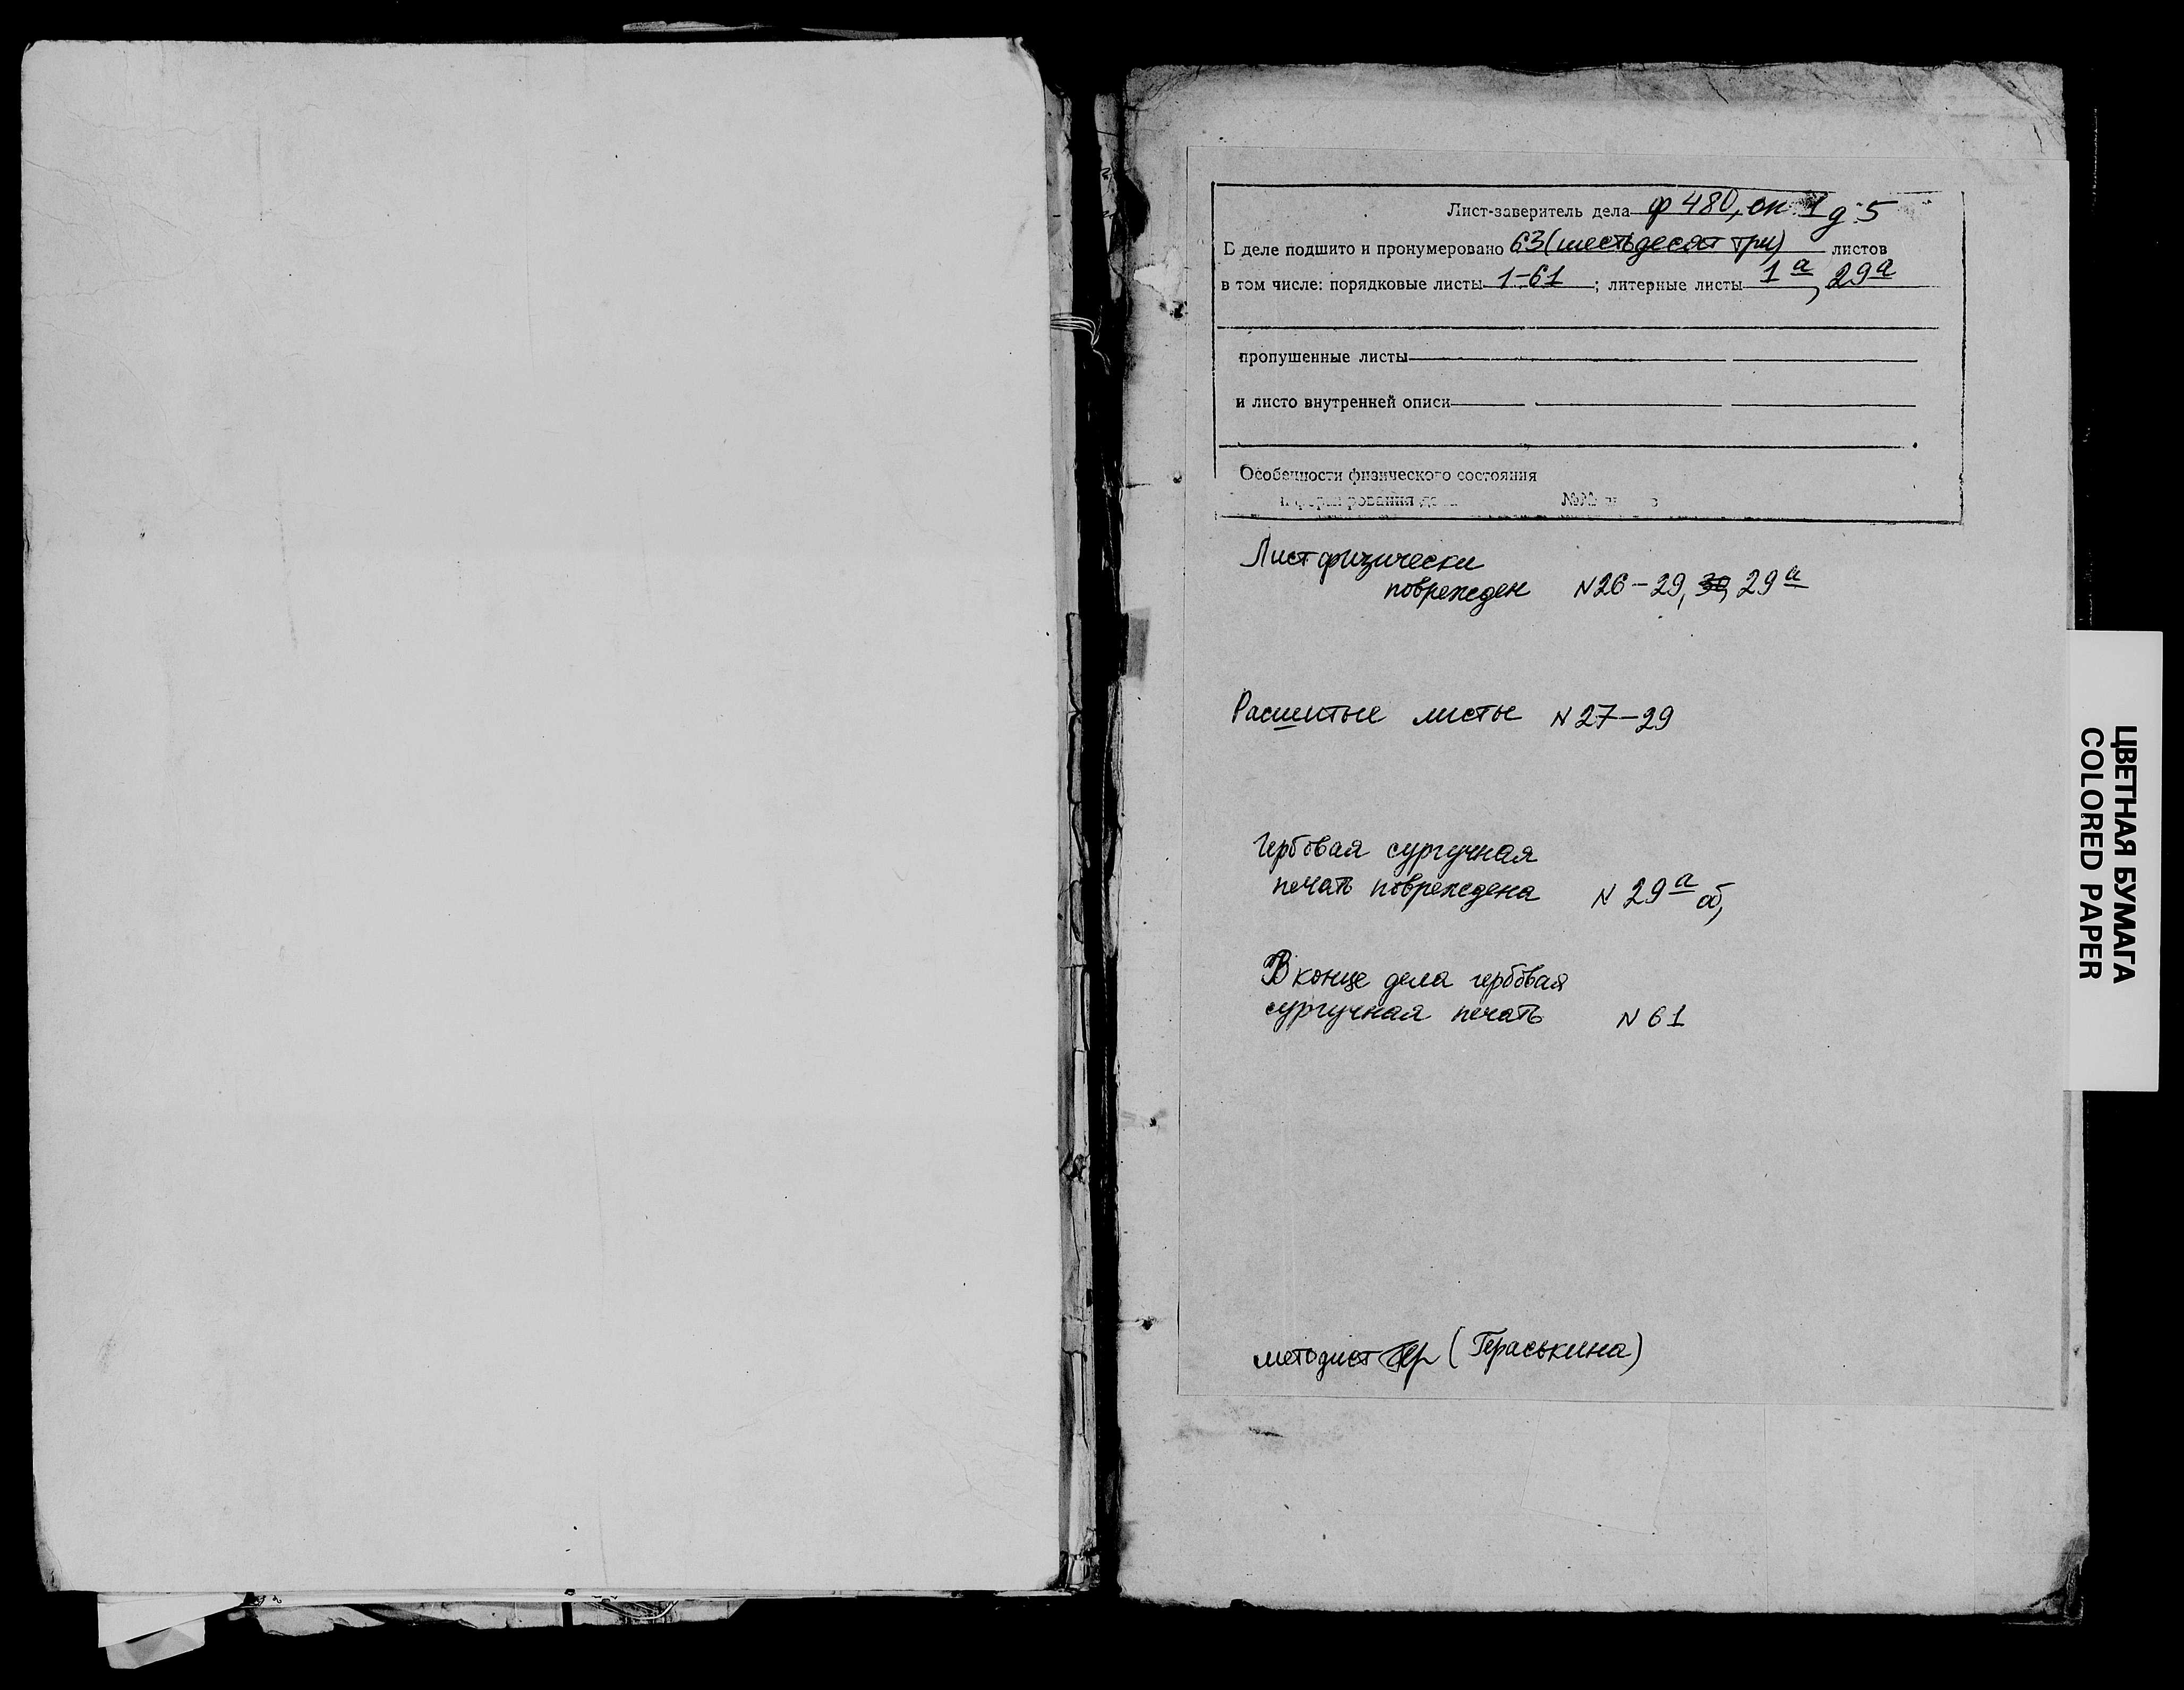 Лист-заверитель дела ф 480, оп 1 д 5
В деле подшито и пронумеровано 63 (шестьдесят три) листов
в том числе: порядковые листы 1-61 ; литерные листы 1а, 29а
пропушенные листы
и листо внутренней описи
Особенности физического состояния
№№
Лист физически
поврежден N 26-29, 29а
Расшитые листы N 27-29
Гербовая сургучная
печать повреждена N 29а об,
В конце дела гербовая
сургучная печать N 61
методист (Гераськина)
ЦВЕТНАЯ БУМАГА
COLORED PAPER